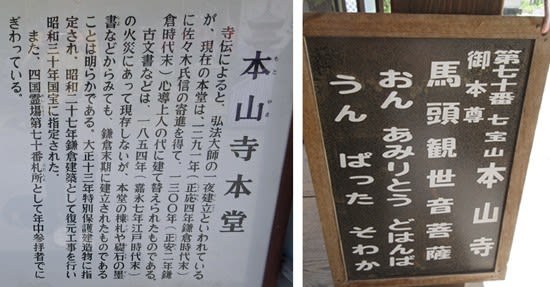 本山寺本堂
もと やま
寺伝によると、弘法大師の一夜建立といわれている
が、現在の本堂は一二九一年（正応四年鎌倉時代末）
に佐々木氏信の寄進を得て、一三〇〇年（正安二年鎌
倉時代末）心導上人の代に建て替えられたものである。
古文書などは、一八五四年（嘉永七年江戸時代末）
の火災にあって現存しないが、本堂の棟札や礎石の墨
書などからみても、鎌倉末期に建立されたものである
ことは明らかである。大正十三年特別保護建造物に指
定され、昭和二十七年鎌倉建築として復元工事を行い
昭和三十年国宝に指定された。
また、四国霊場第七十番札所として年中参拝者でに
ぎわっている。
第七十番 七宝山 本山寺
御本尊
馬頭観世音菩薩
おん あみりとう どはんば
うん ぱった そわか